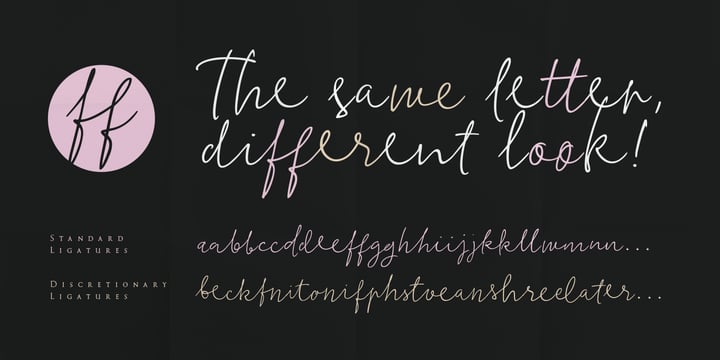 ff
The same letter,
different look!
Standard
Ligatures
aabbccddeeffgghhiijjkkllwmmnn...
Discretionary
Ligatures
beckfnitonifphstveanshreelater...